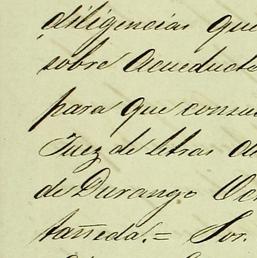 diligencias que
sobre Acueducto
para que consu
Juez de letras de
de Durango
tañeda.= Sor.